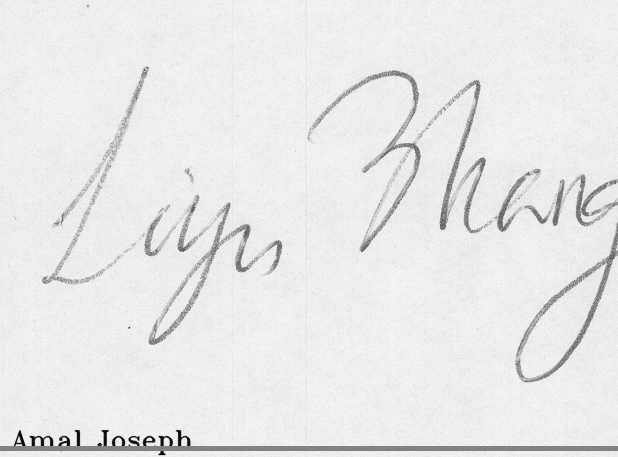 Liyu Zhang
Amal Joseph